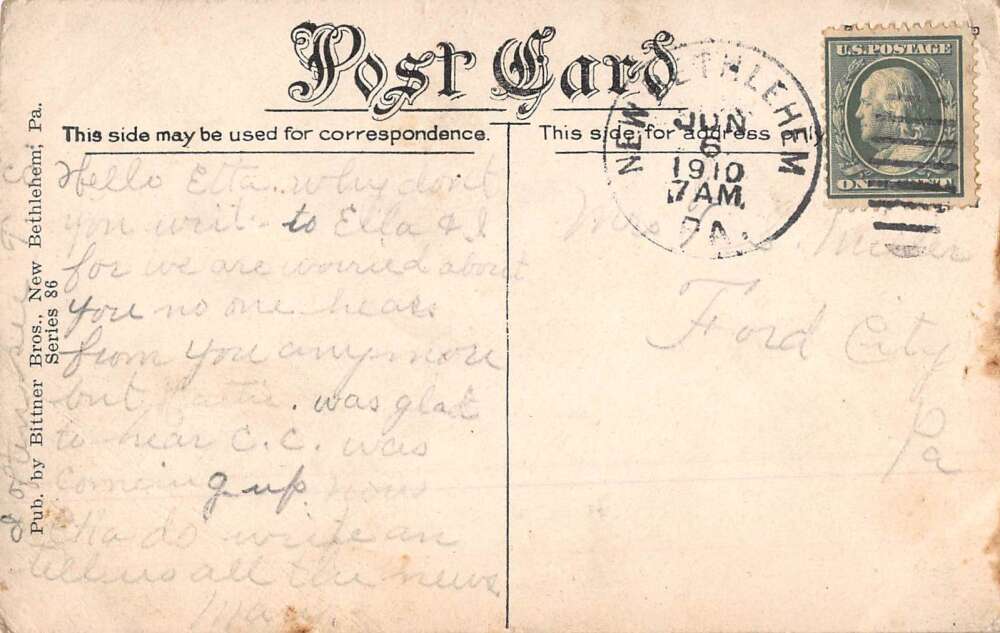 Post Card
This side may be used for correspondence.
This side for address only
U.S. POSTAGE
ONE CENT
NEW BETHLEHEM
JUN
6
1910
7 AM
PA.
Pub. by Bittner Bros., New Bethlehem, Pa.
Series 86
Hello Etta. why don't
you writ to Ella & I
for we are worried about
you no one hears
from you anymore
but . was glad
to hear C.C. was
comeing up
do write an
tell us all the news
Mrs Miller
Ford City
Pa